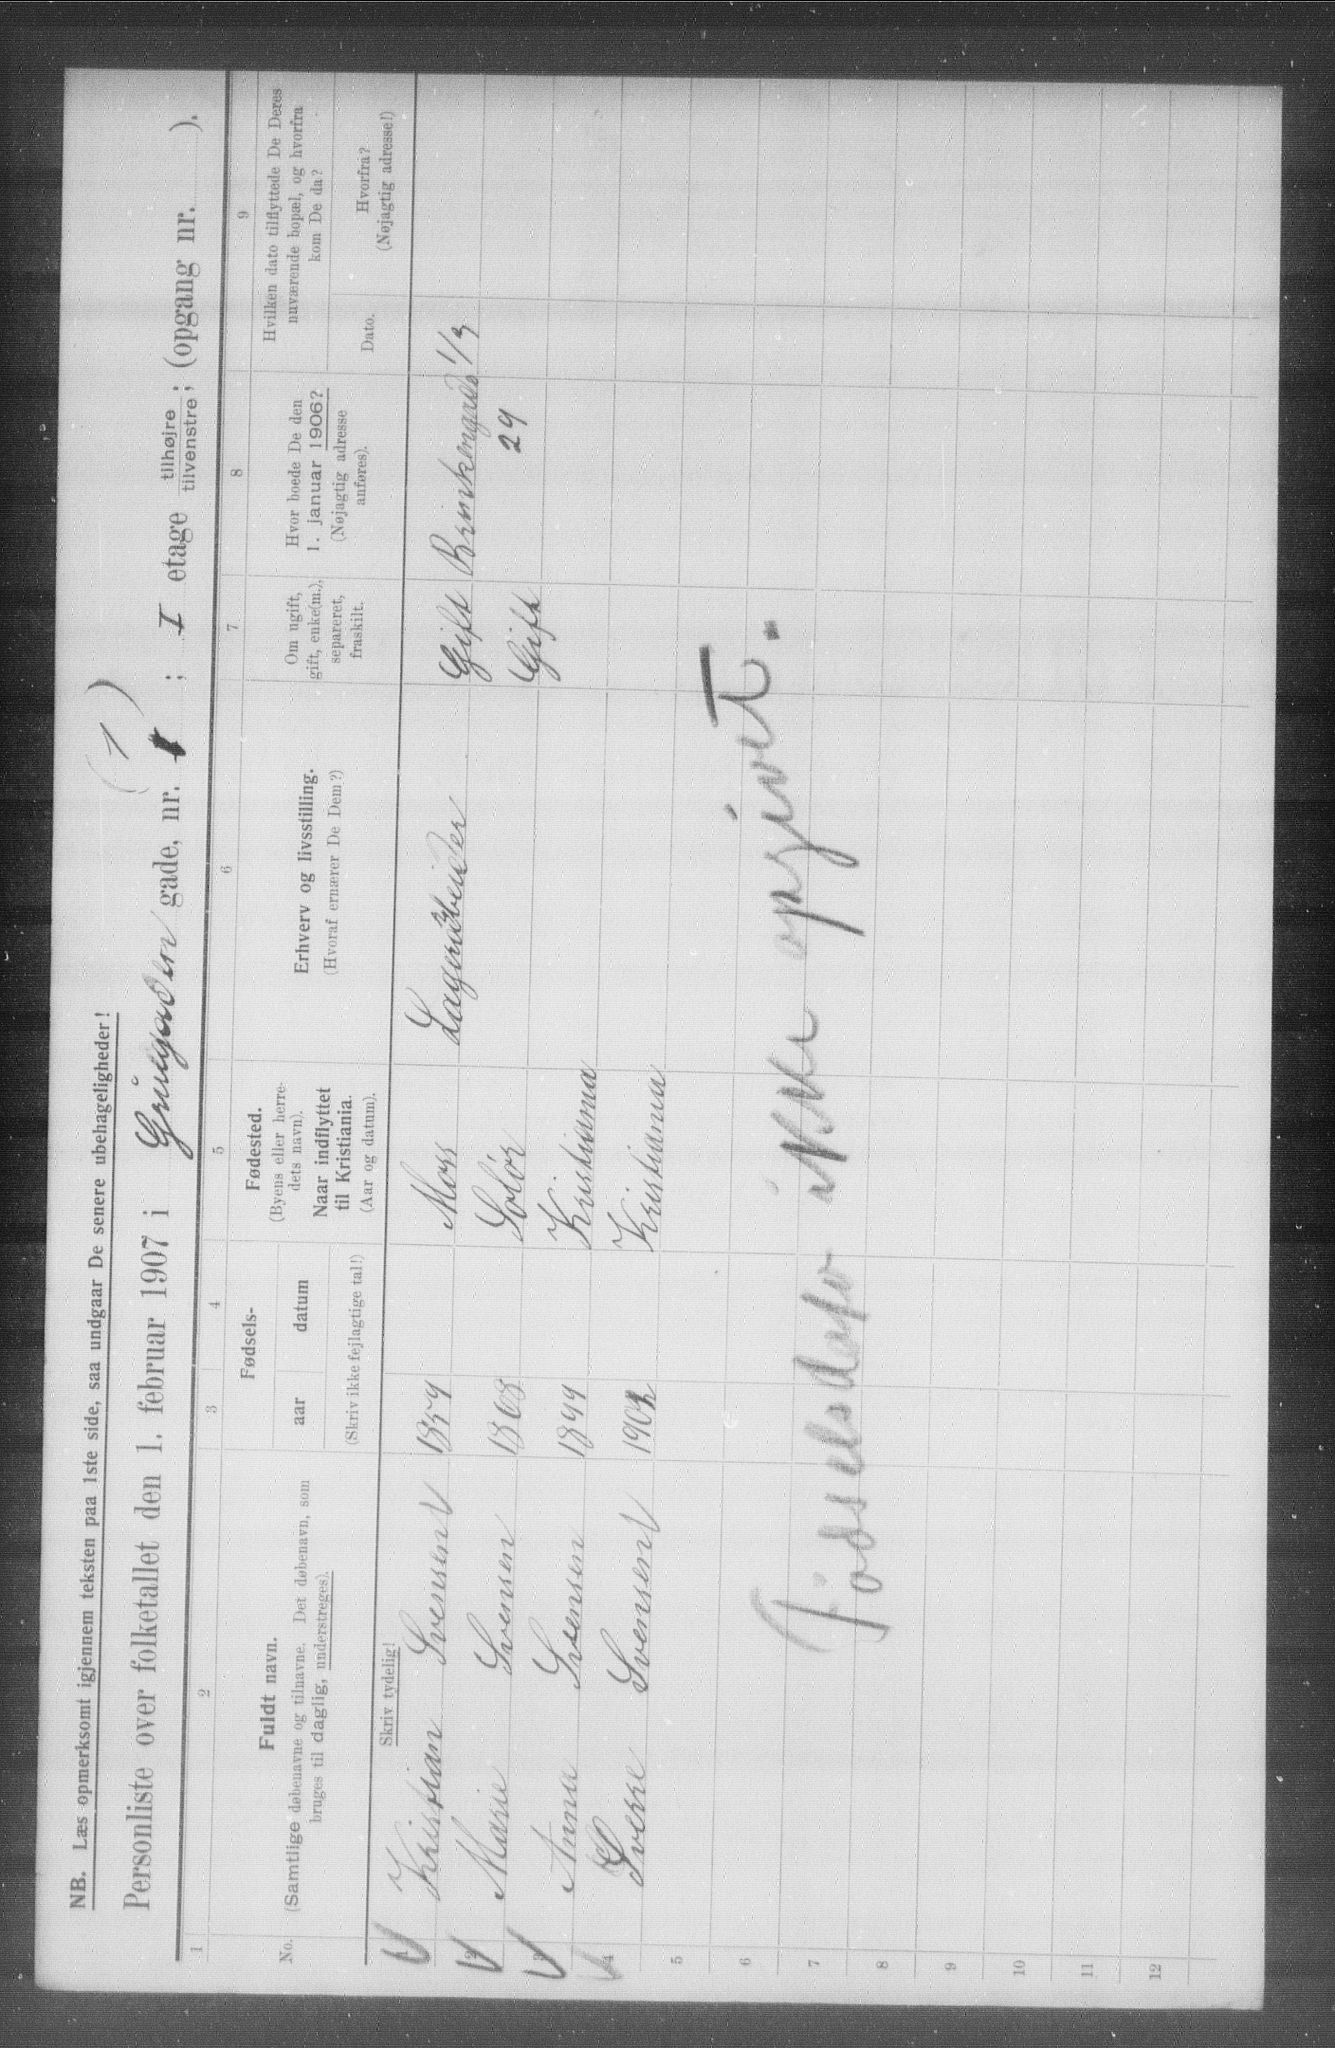 NB. Læs opmerksomt igjennem teksten paa 1ste side, saa undgaar De senere ubehageligheder!
(1)
Personliste over folketallet den 1. februar 1907 i gade, nr. ; I etage tilhøjre tilvenstre; (opgang nr. ).
1 2 3 4 5 6 7 8 9
No.
Fuldt navn.
(Samtlige døbenavne og tilnavne. Det døbenavn, som
bruges til daglig, understreges).
Fødsels-
aar datum
(Skriv ikke fejlagtige tal!)
Fødested.
(Byens eller herre-
dets navn).
Naar indflyttet
til Kristiania.
(Aar og datum).
Erhverv og livsstilling.
(Hvoraf ernærer De Dem?)
Om ugift,
gift, enke(m.),
separeret,
fraskilt.
Hvor boede De den
1. januar 1906?
(Nøjagtig adresse
anføres).
Hvilken dato tilflyttede De Deres
nuværende bopæl, og hvorfra
kom De da?
Dato.
Hvorfra?
(Nøjagtig adresse!)
Skriv tydelig!
Kristian Svensen Moss Gift 1/3
2 Marie Svensen 1868 Solör Gift 29
3 Anna Svensen 1899 Kristiania
4 Sverre Svensen Kristiania
5
6
7 Födselsdato ikke opgivet.
8
9
10
11
12